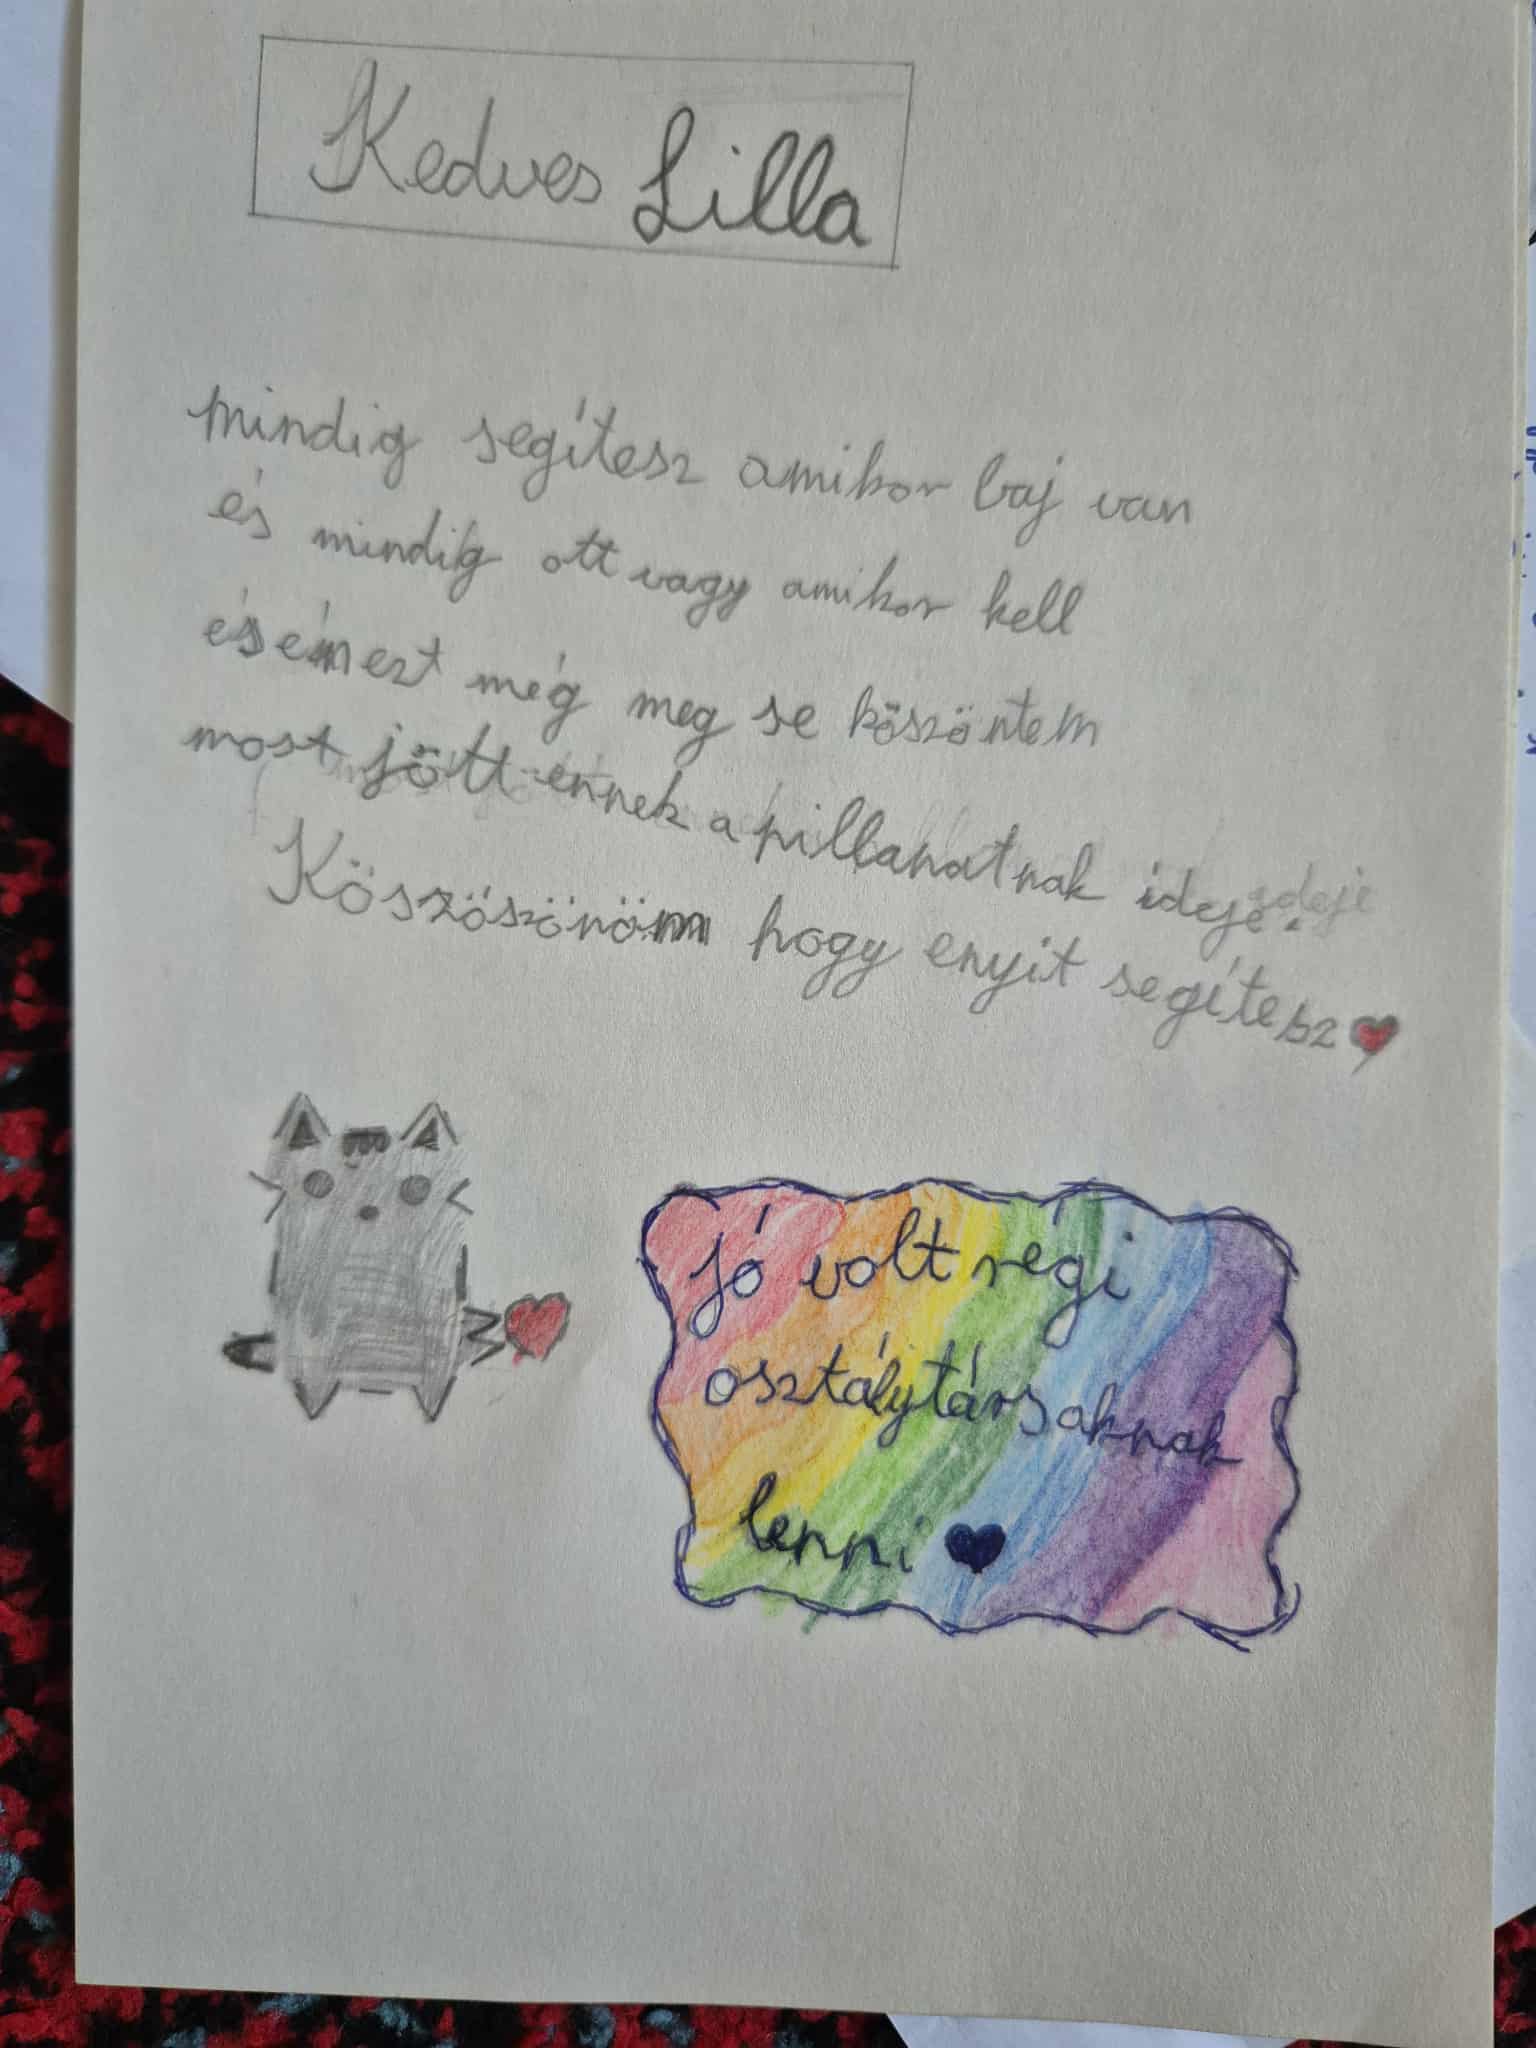 Kedves Lilla
mindig segítesz amikor baj van
és mindig ott vagy amikor kell
és én ezt még meg se köszöntem
most jött ennek a pillanatnak ideje.
Köszöszönöm hogy enyit segítesz
jó volt régi
osztálytársaknak
lenni